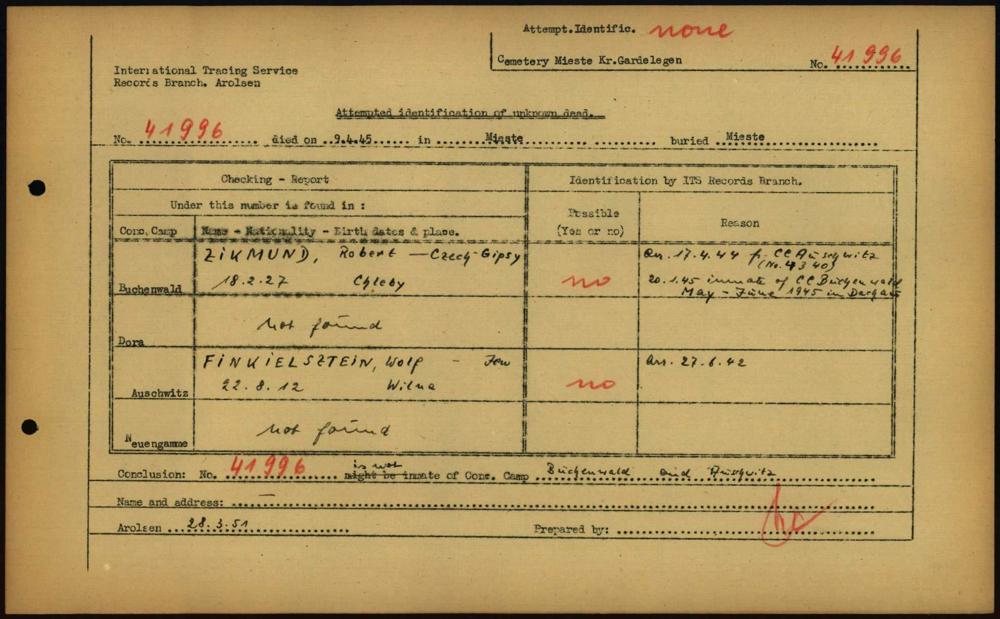 Attempt.Identific. none
Cemetery Mieste Kr.Gardelegen No. 41996
International Tracing Service
Records Branch. Arolsen
Attempted identification of unknown dead.
No. 41996 died on 9.4.45 in Mieste buried Mieste
Checking - Report Identification by ITS Records Branch.
Under this number is found in :
Possible
(Yes or no) Reason
Conc. Camp Name - Nationality - Birth dates & place.
ZIKMUND, Robert — Czech-Gipsy arr. 17.4.44 fr. CC Auschwitz
Buchenwald 18.2.27 Chleby no 20.1.45 inmate of CC Buchenwald
May - June 1945 in Dachau
Dora not found
FINKIELSZTEIN, Wolf - Jew arr. 27.6.42
Auschwitz 22.8.12 Wilna no
Neuengamme not found
Conclusion: No. 41996 might be is not inmate of Conc. Camp Buchenwald and Auschwitz
Name and address: —
Arolsen 28.3.51 Prepared by: